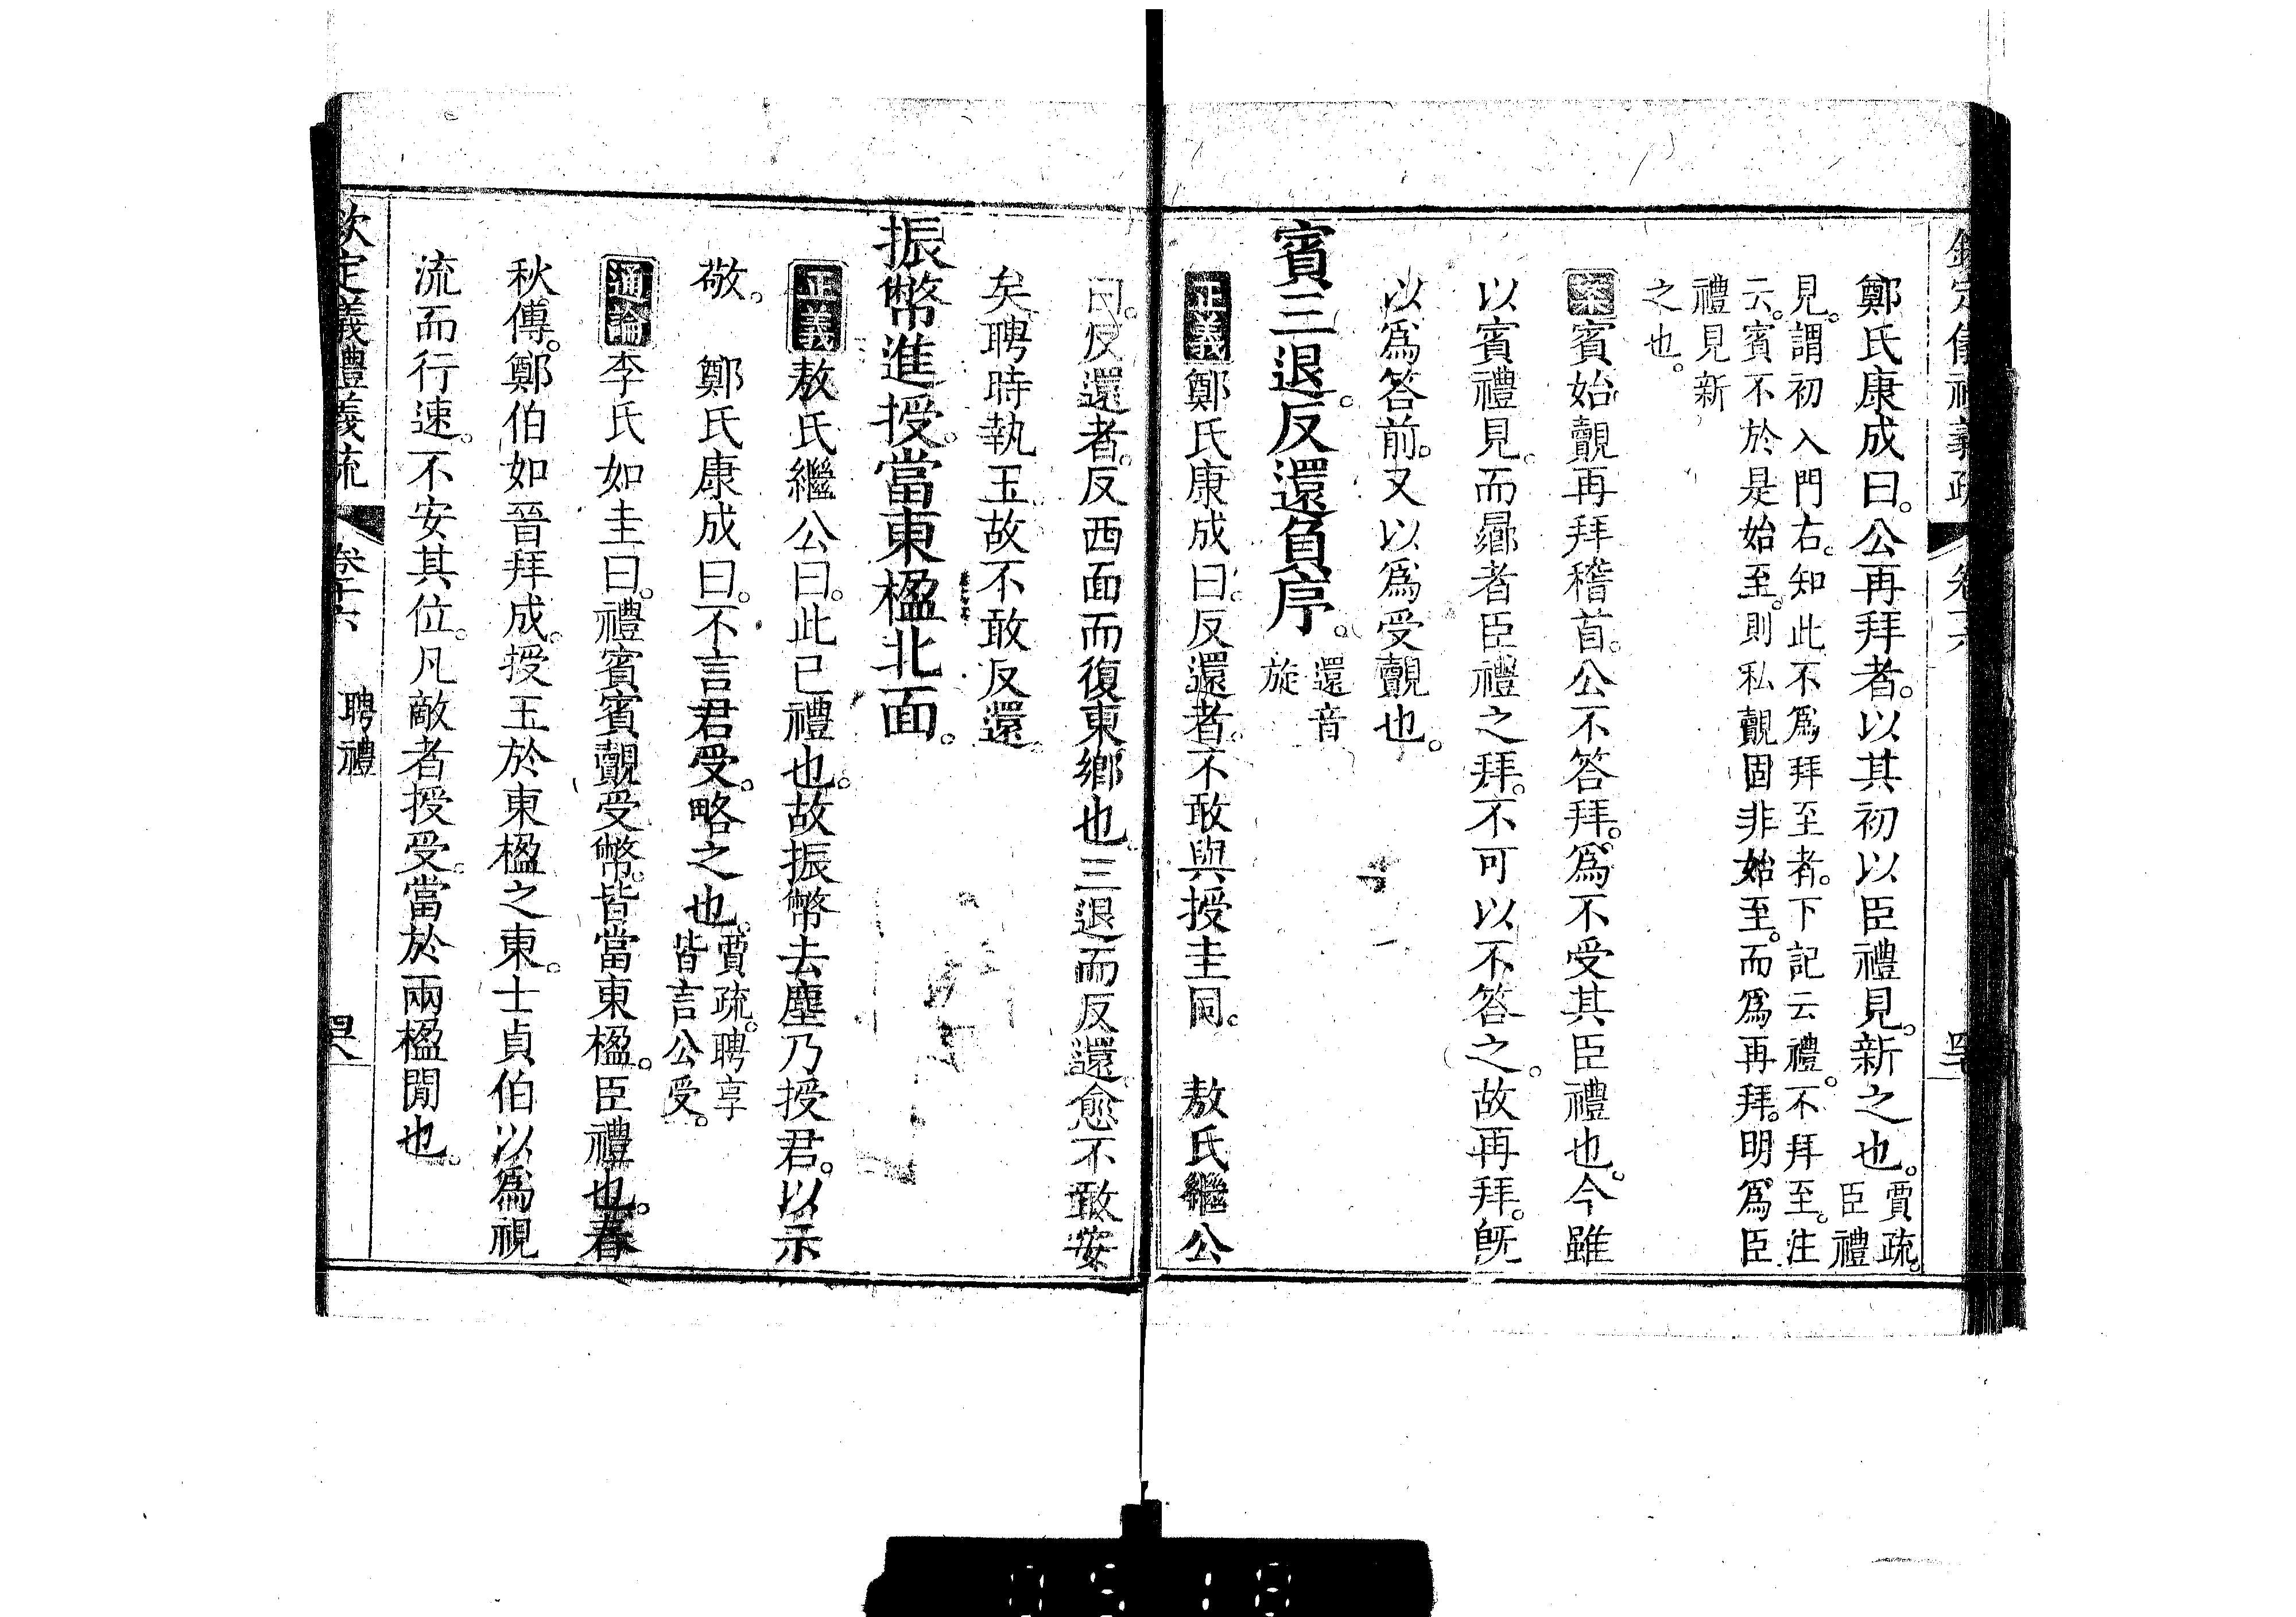 欽定儀禮義疏 卷十六
鄭氏康成曰。公再拜者。以其初以臣禮見。新之也。賈疏。臣禮
見。謂初入門右。知此不爲拜至者。下記云禮。不拜至。注
云。賓不於是始至。則私覿固非始至。而爲再拜。明爲臣
禮見新
之也。
案賓始覿再拜稽首。公不答拜。爲不受其臣禮也。今雖
以賓禮見。而曏者臣禮之拜。不可以不答之。故再拜。旣
以爲答前。又以爲受覿也。
賓三退。反還負序。還音
旋
正義鄭氏康成曰。反還者。不敢與授圭同。 敖氏繼公
曰。反還者。反西面而復東鄉也。三退而反還。愈不敢安
矣。聘時執玉。故不敢反還。
振幣進授。當東楹北面。
正義敖氏繼公曰。此已禮也。故振幣去塵乃授君。以示
敬。 鄭氏康成曰。不言君受。略之也。賈疏。聘享
皆言公受。
通論李氏如圭曰。禮賓賓覿受幣。皆當東楹。臣禮也。春
秋傳。鄭伯如晉拜成。授玉於東楹之東。士貞伯以爲視
流而行速。不安其位。凡敵者授受。當於兩楹閒也。
欽定義禮義疏 卷十六 聘禮 四八